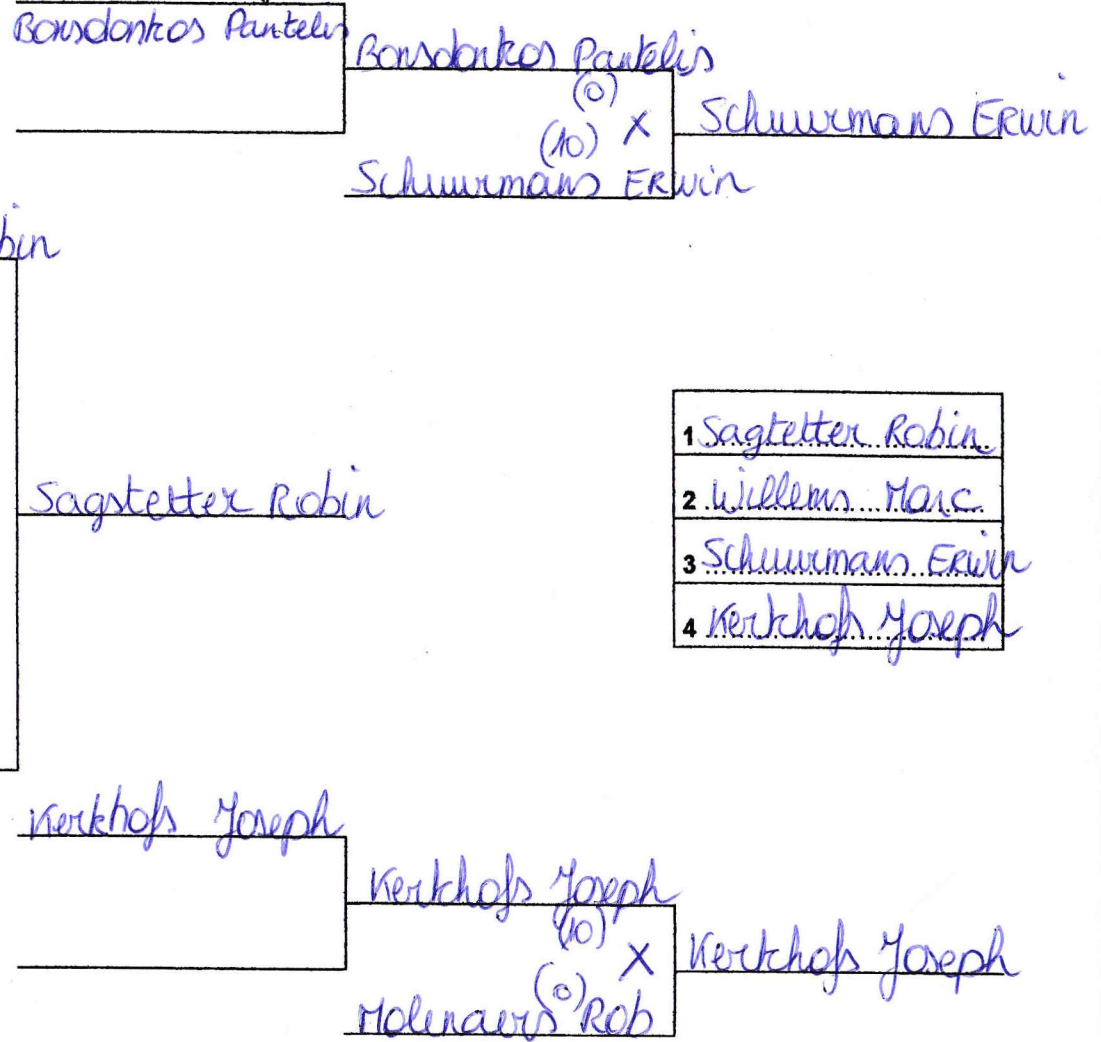 Bonsdonkos Pantelis
Bonsdonkos Pantelis
(0)
(10) X
Schuurmans ERwin
Schuurmans ERwin
bin
Sagstetter Robin
1 Sagtetter Robin
2 Willems Marc
3 Schuurmans ERwin
4 Kerkhofs Joseph
Kerkhofs Joseph
Kerkhofs Joseph
(10) X
(0)
Molenaers Rob
Kerkhofs Joseph